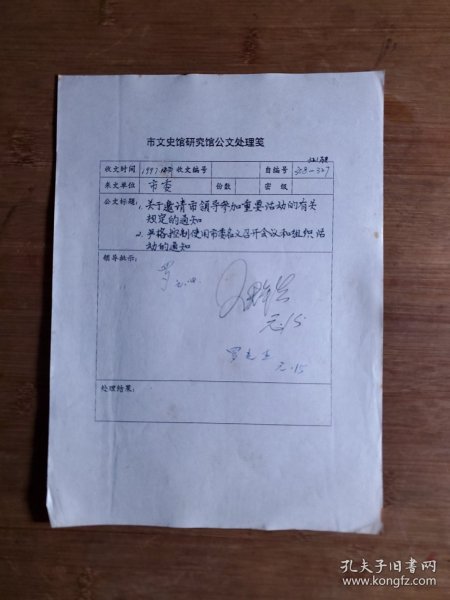 市文史馆研究馆公文处理笺
收文时间 1997 收文编号 自编号 323-327
来文单位 市委 份数 密级
公文标题: 1. 关于邀请市领导参加重要活动的有关
规定的通知
2. 严格控制使用市委名义召开会议和组织活
动的通知
领导批示:
元.15
元.15
处理结果:
孔夫子旧书网
www.kongfz.com